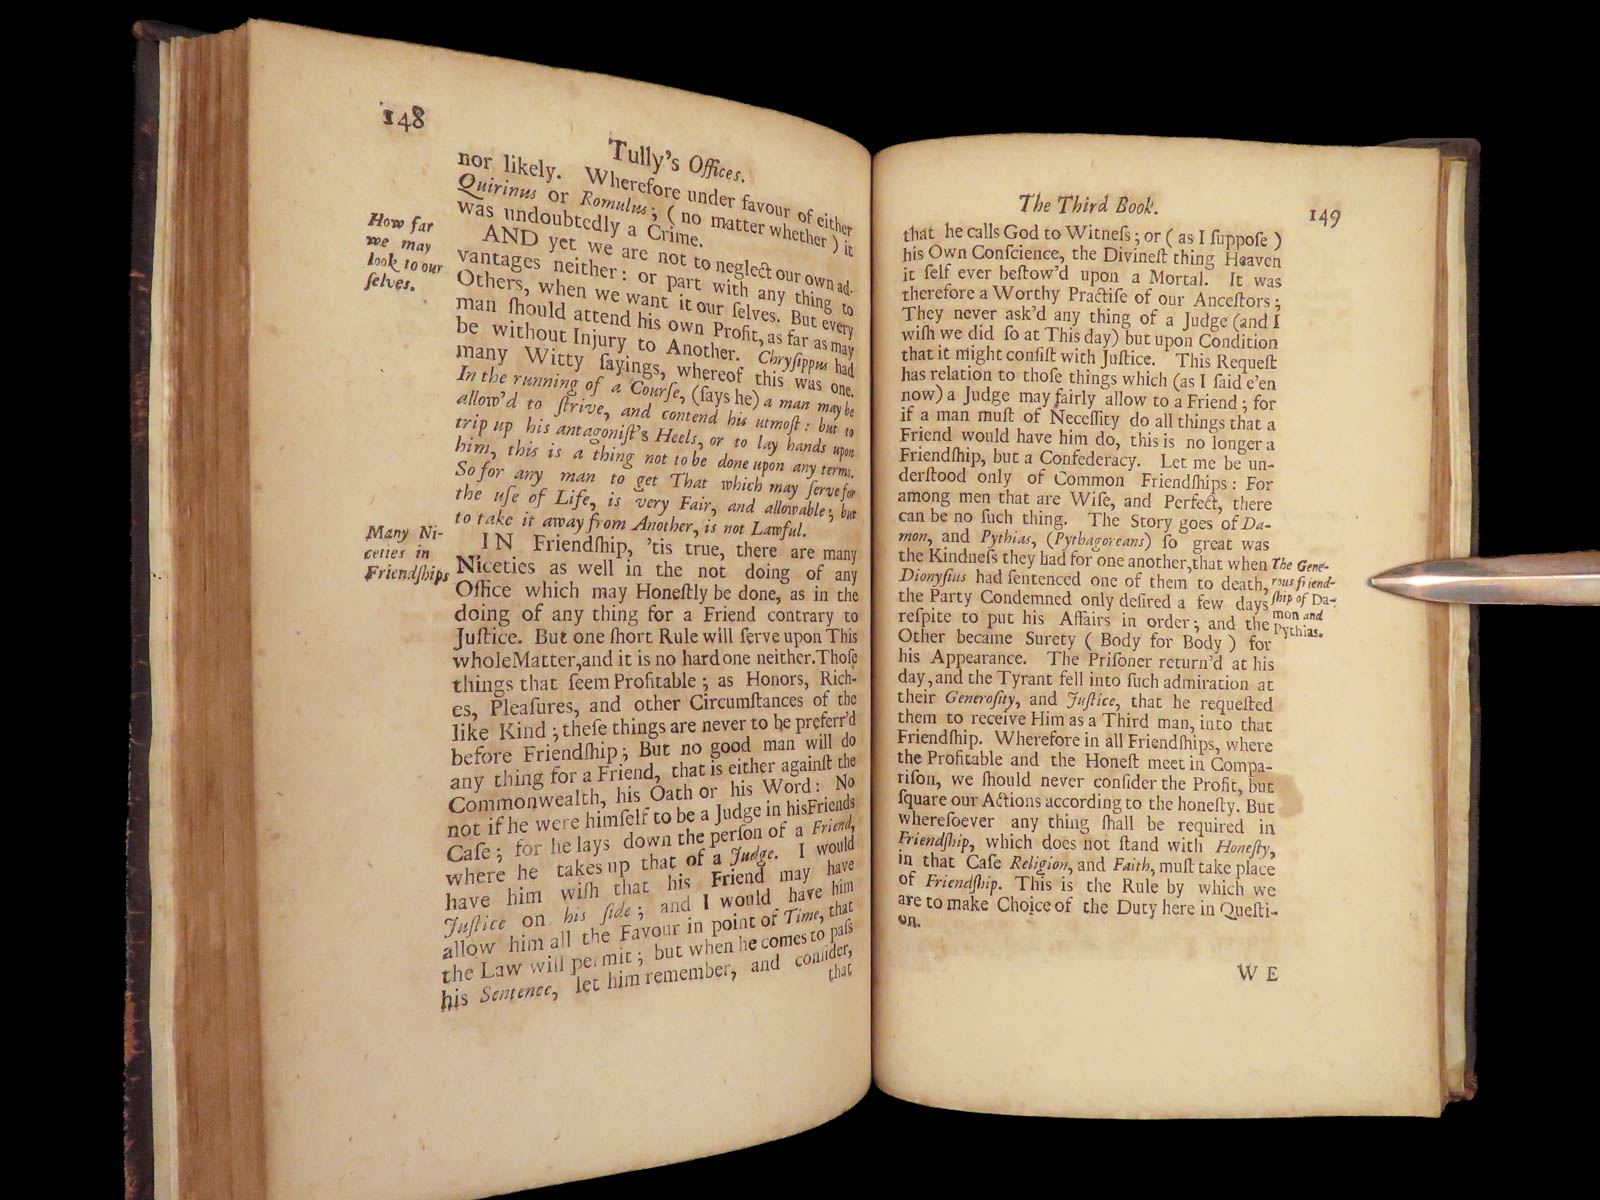 148
Tully's Offices.
nor likely. Wherefore under favour of either
Quirinus or Romulus; (no matter whether) it
was undoubtedly a Crime.
How far
we may
look to our
ſelves.
AND yet we are not to neglect our own ad-
vantages neither: or part with any thing to
Others, when we want it our ſelves. But every
man ſhould attend his own Profit, as far as may
be without Injury to Another. Chryſippus had
many Witty ſayings, whereof this was one.
In the running of a Courſe, (ſays he) a man may be
allow'd to ſtrive, and contend his utmoſt: but to
trip up his antagoniſt's Heels, or to lay hands upon
him, this is a thing not to be done upon any terms.
So for any man to get That which may ſerve for
the uſe of Life, is very Fair, and allowable; but
to take it away from Another, is not Lawful.
Many Ni-
ceties in
Friendſhips
IN Friendſhip, 'tis true, there are many
Niceties as well in the not doing of any
Office which may Honeſtly be done, as in the
doing of any thing for a Friend contrary to
Juſtice. But one ſhort Rule will ſerve upon This
whole Matter, and it is no hard one neither. Thoſe
things that ſeem Profitable; as Honors, Rich-
es, Pleaſures, and other Circumſtances of the
like Kind; theſe things are never to be preferr'd
before Friendſhip; But no good man will do
any thing for a Friend, that is either againſt the
Commonwealth, his Oath or his Word: No
not if he were himſelf to be a Judge in his Friends
Caſe; for he lays down the perſon of a Friend,
where he takes up that of a Judge. I would
have him wiſh that his Friend may have
Juſtice on his ſide; and I would have him
allow him all the Favour in point of Time, that
the Law will permit; but when he comes to paſs
his Sentence, let him remember, and conſider,
that
The Third Book.
149
that he calls God to Witneſs; or (as I ſuppoſe)
his Own Conſcience, the Divineſt thing Heaven
it ſelf ever beſtow'd upon a Mortal. It was
therefore a Worthy Practiſe of our Anceſtors;
They never ask'd any thing of a Judge (and I
wiſh we did ſo at This day) but upon Condition
that it might conſiſt with Juſtice. This Requeſt
has relation to thoſe things which (as I ſaid e'en
now) a Judge may fairly allow to a Friend; for
if a man muſt of Neceſſity do all things that a
Friend would have him do, this is no longer a
Friendſhip, but a Confederacy. Let me be un-
derſtood only of Common Friendſhips: For
among men that are Wiſe, and Perfect, there
can be no ſuch thing. The Story goes of Da-
mon, and Pythias, (Pythagoreans) ſo great was
the Kindneſs they had for one another, that when
Dionyſius had ſentenced one of them to death,
the Party Condemned only deſired a few days
reſpite to put his Affairs in order; and the
Other became Surety (Body for Body) for
his Appearance. The Priſoner return'd at his
day, and the Tyrant fell into ſuch admiration at
their Generoſity, and Juſtice, that he requeſted
them to receive Him as a Third man, into that
Friendſhip. Wherefore in all Friendſhips, where
the Profitable and the Honeſt meet in Compa-
riſon, we ſhould never conſider the Profit, but
ſquare our Actions according to the honeſty. But
whereſoever any thing ſhall be required in
Friendſhip, which does not ſtand with Honeſty,
in that Caſe Religion, and Faith, muſt take place
of Friendſhip. This is the Rule by which we
are to make Choice of the Duty here in Queſti-
on.
The Gene-
rous friend-
ſhip of Da-
mon and
Pythias.
WE